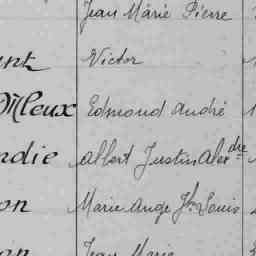 Jean Marie Pierre
ant Victor
Milleux Edmond André
ndie Albert Justin Alexdre
on Marie Ange Jh Louis
on Jean Marie